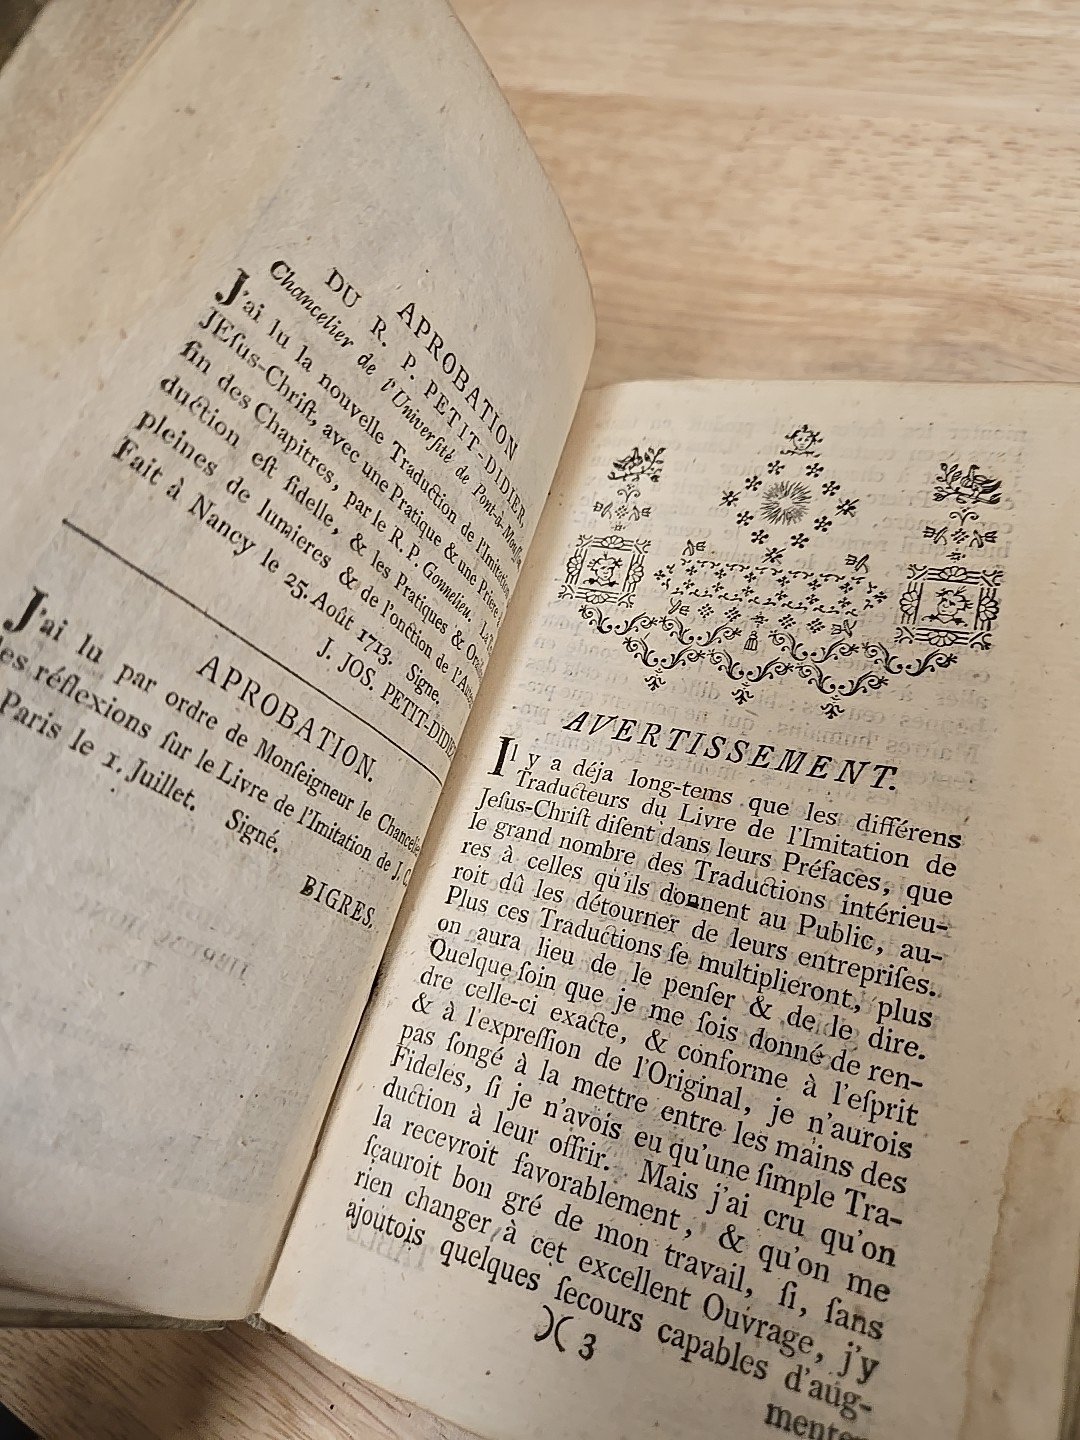 APROBATION
DU R. P. PETIT-DIDIER,
Chancelier de l'Université de Pont-à-Mouſſon
J'ai lu la nouvelle Traduction de l'Imitation
JEſus-Chriſt, avec une Pratique & une Priere
fin des Chapitres, par le R. P. Gonnelieu. La
duction eſt fidelle, & les Pratiques &
pleines de lumieres & de l'onction de
Fait à Nancy le 25. Août 1713. Signe.
J. JOS. PETIT-DIDIE
APROBATION.
J'ai lu par ordre de Monſeigneur le Chancelie
les réflexions ſur le Livre de l'Imitation de J. C.
Paris le 1. Juillet. Signé,
BIGRES,
AVERTISSEMENT.
Il y a déja long-tems que les différens
Traducteurs du Livre de l'Imitation de
Jeſus-Chriſt diſent dans leurs Préfaces, que
le grand nombre des Traductions intérieu-
res à celles qu'ils donnent au Public, au-
roit dû les détourner de leurs entrepriſes.
Plus ces Traductions ſe multiplieront, plus
on aura lieu de le penſer & de le dire.
Quelque ſoin que je me ſois donné de ren-
dre celle-ci exacte, & conforme à l'eſprit
& à l'expreſſion de l'Original, je n'aurois
pas ſongé à la mettre entre les mains des
Fideles, ſi je n'avois eu qu'une ſimple Tra-
duction à leur offrir. Mais j'ai cru qu'on
la recevroit favorablement, & qu'on me
ſçauroit bon gré de mon travail, ſi, ſans
rien changer à cet excellent Ouvrage, j'y
ajoutois quelques ſecours capables d'aug-
)( 3
menter